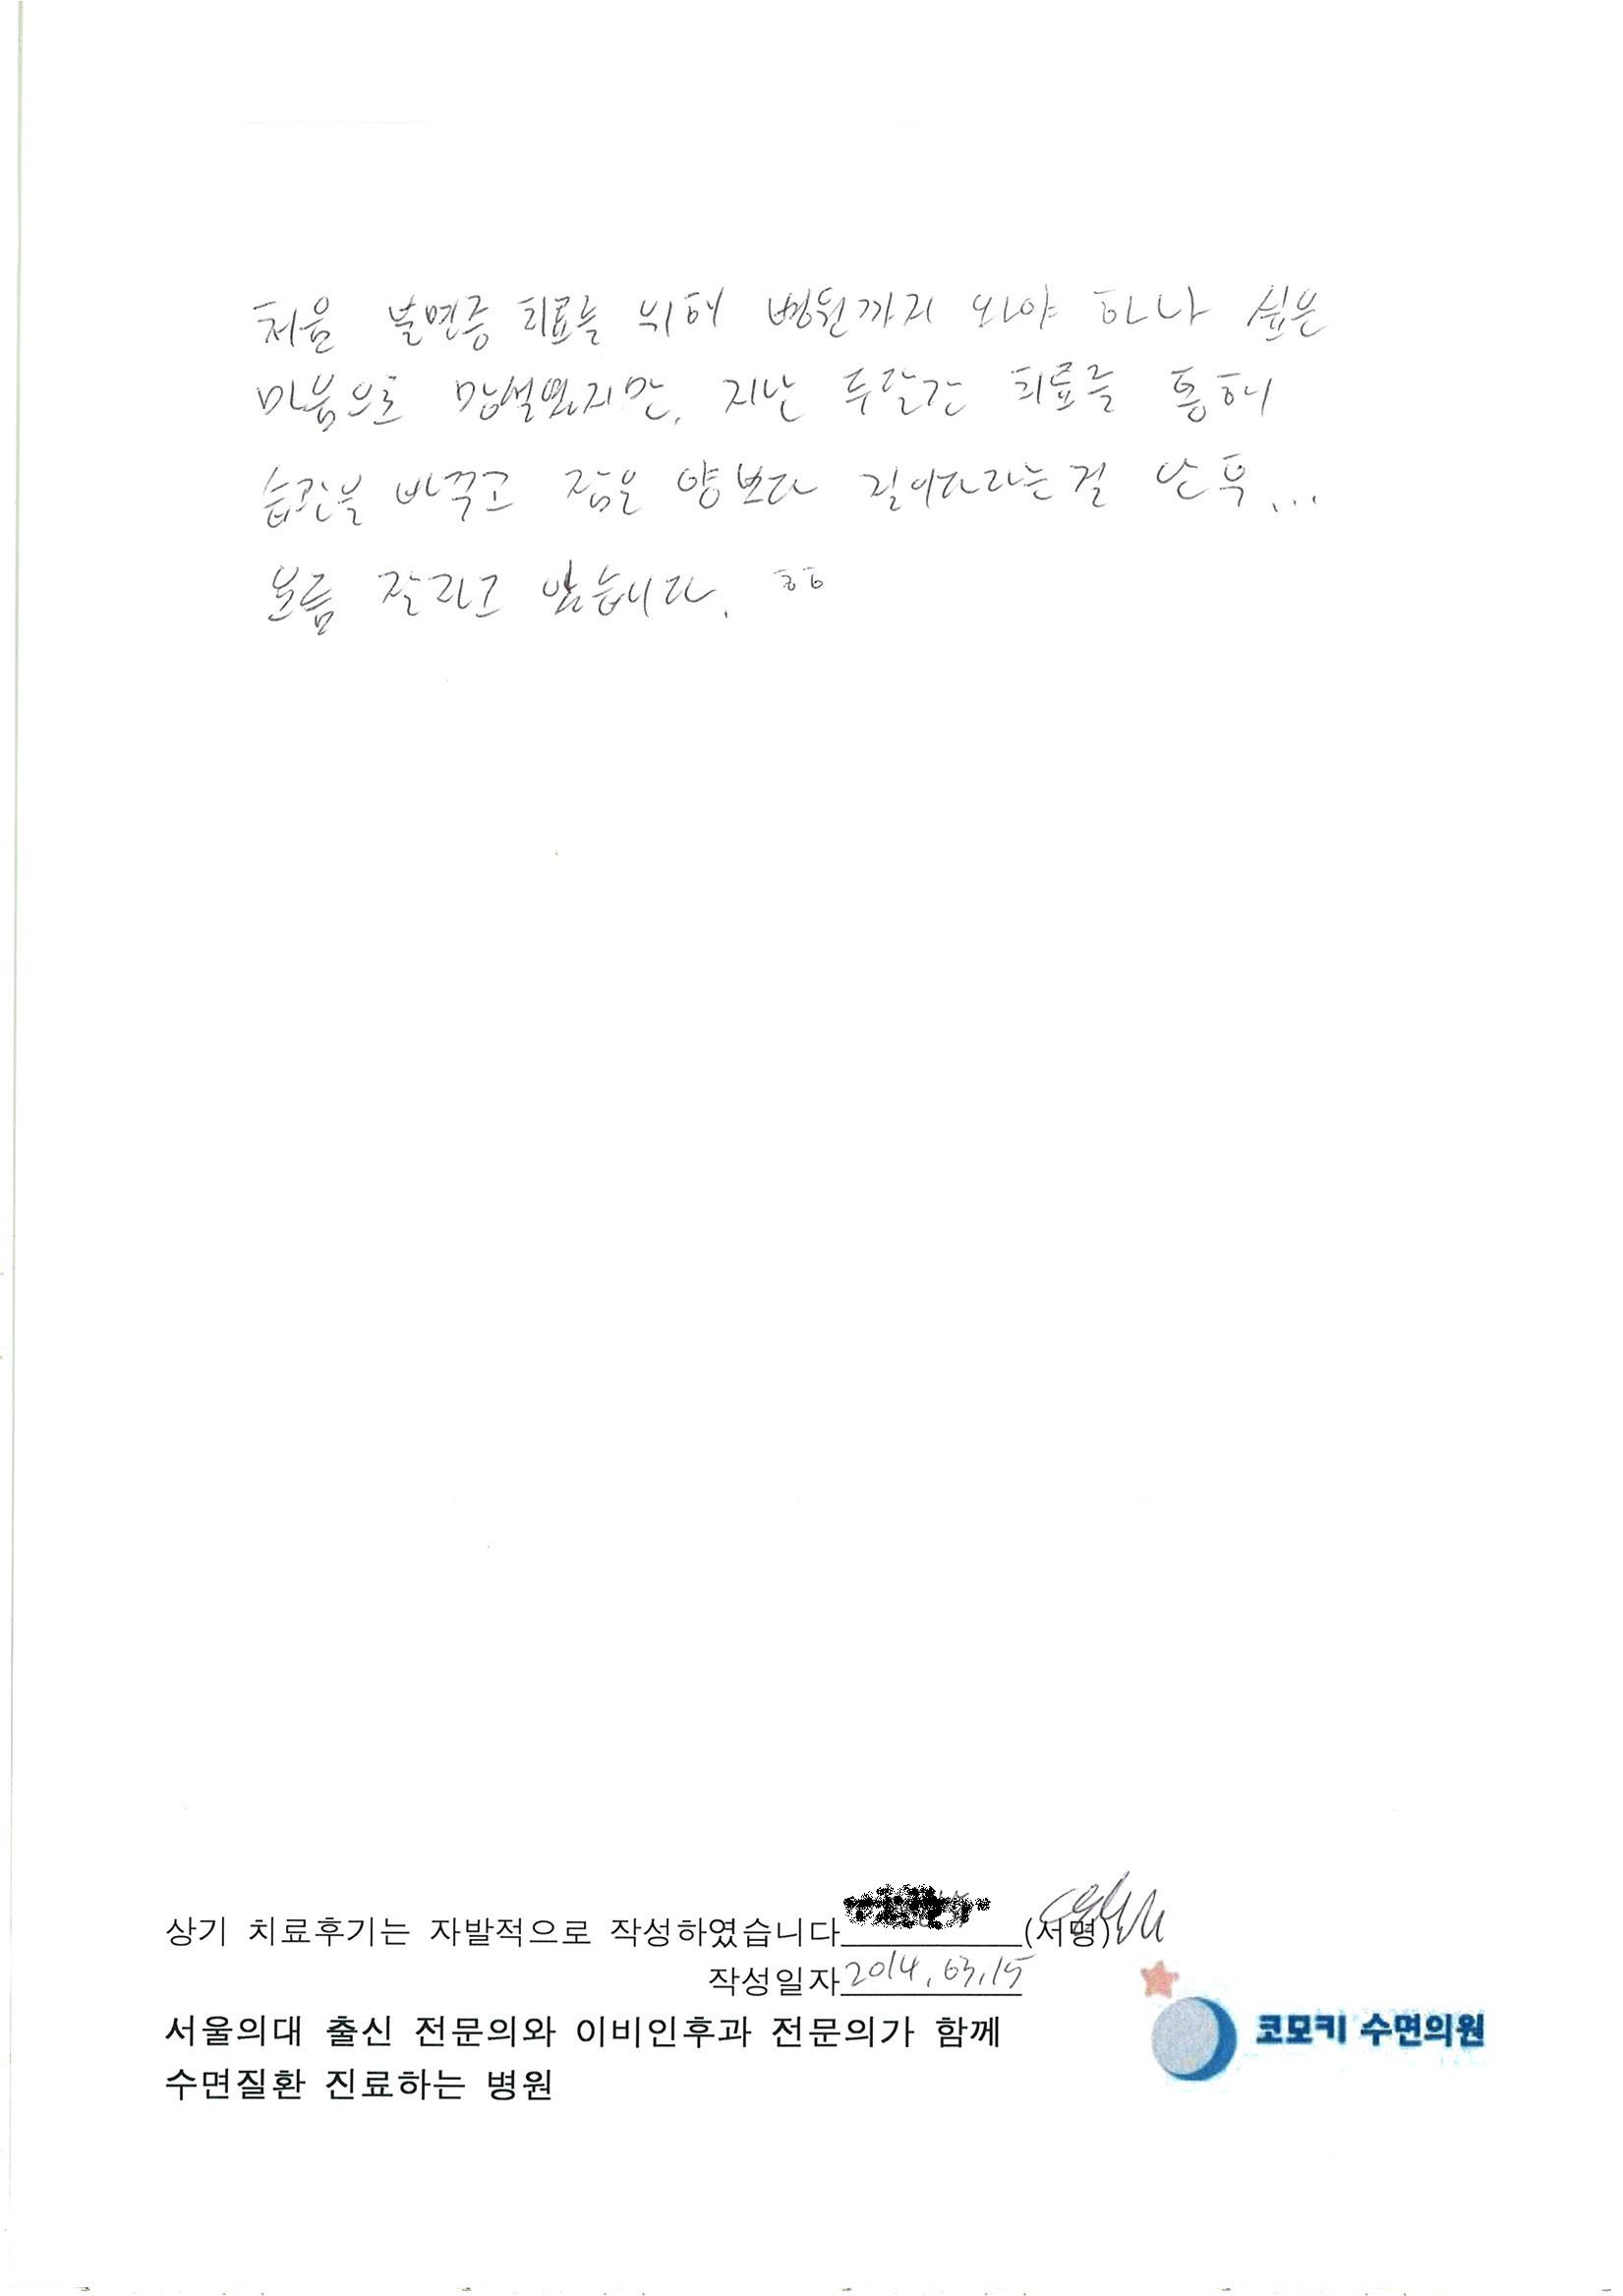 처음 불면증 치료를 위해 병원까지 와야 하나 싶은
마음으로 망설였지만, 지난 두달간 치료를 통해
습관을 바꾸고 잠은 양보다 질이다라는걸 안 후...
요즘 잘자고 있습니다. ㅎㅎ
상기 치료후기는 자발적으로 작성하였습니다 (서명)
작성일자 2014.03.15
서울의대 출신 전문의와 이비인후과 전문의가 함께
수면질환 진료하는 병원
코모키 수면의원